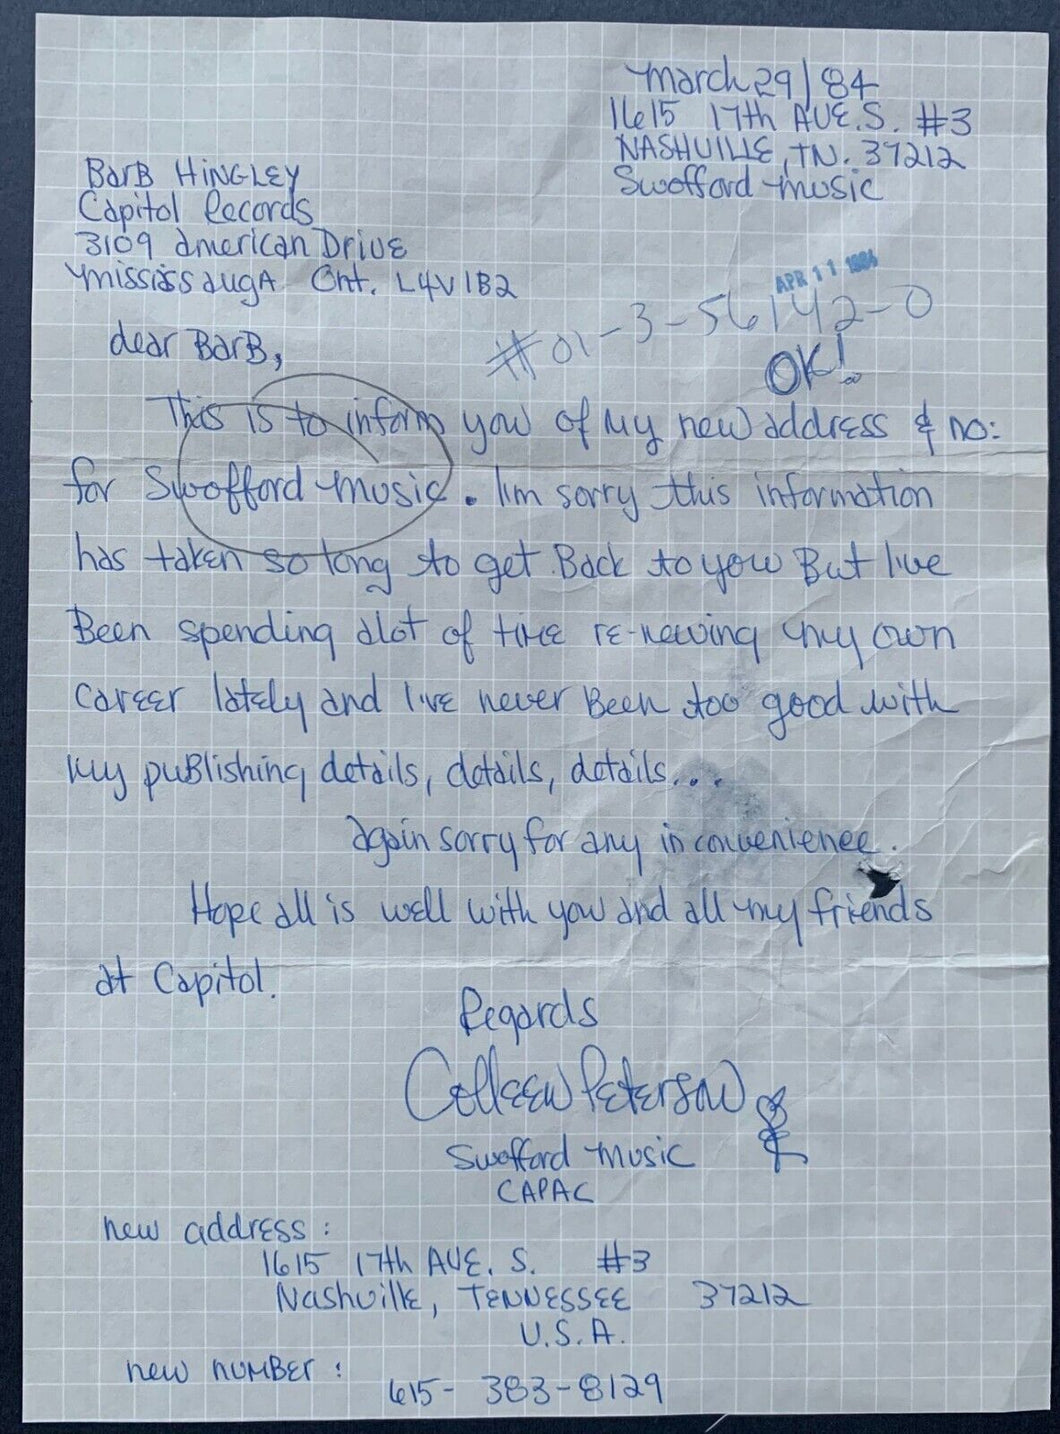 March 29/84
1615 17th AVE. S. #3
NASHVILLE, TN. 37212
Swofford Music
BarB HiNGLEY
Capitol Records
3109 American Drive
Mississauga Ont. L4V 1B2
APR 11 1984
#01-3-56142-0
OK!
dear BarB,
This is to inform you of my new address & no:
for Swofford Music. I'm sorry this information
has taken so long to get Back to you But I've
Been spending alot of time re-newing my own
career lately and I've never Been too good with
my puBlishing details, details, details...
again sorry for any inconvenience.
Hope all is well with you and all my friends
at Capitol.
Regards
Colleen Peterson
Swofford Music
CAPAC
new address:
1615 17th AVE. S. #3
Nashville, TENNESSEE 37212
U.S.A.
new number:
615-383-8129